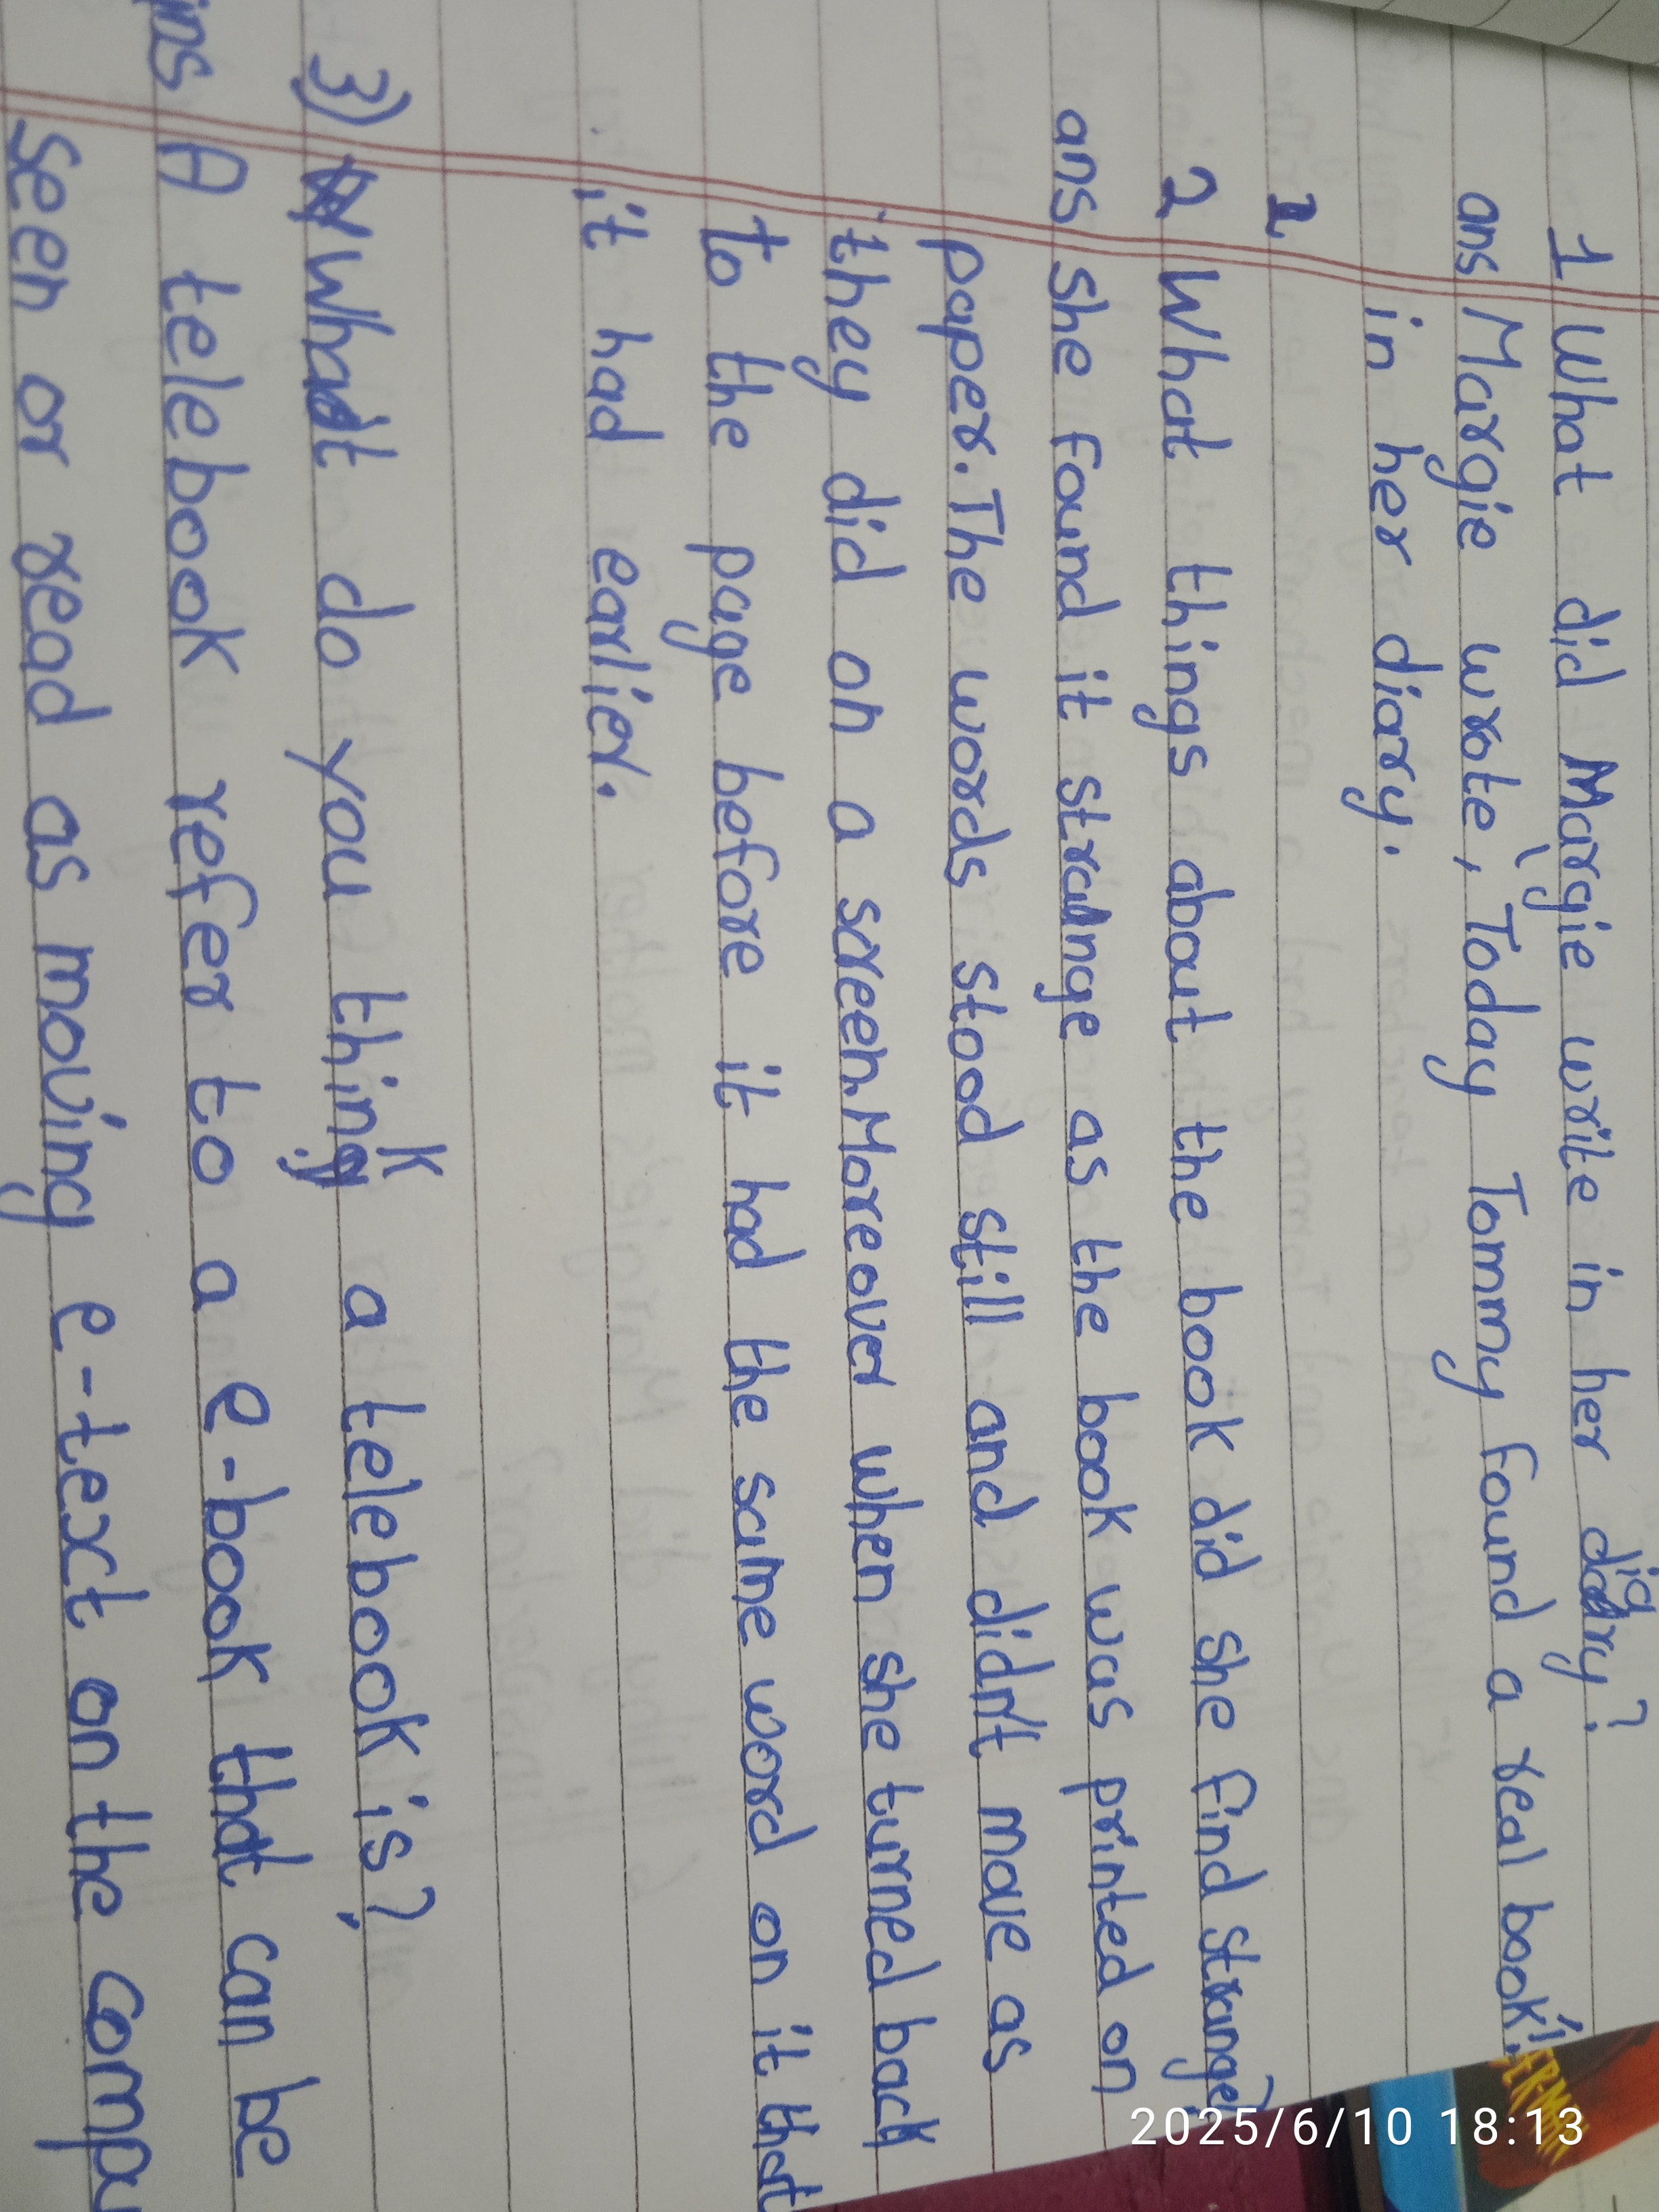 1 What did Margie write in her diary?
ans Margie wrote, 'Today Tommy found a real book!'
in her diary.
2 What things about the book did she find strange?
ans she found it strange as the book was printed on
paper. The words stood still and didn't move as
they did on a screen. Moreover when she turned back
to the page before it had the same word on it that
it had earlier.
3) What do you think a telebook is?
ans A telebook refer to a e-book that can be
seen or read as moving e-text on the compu
2025/6/10 18:13